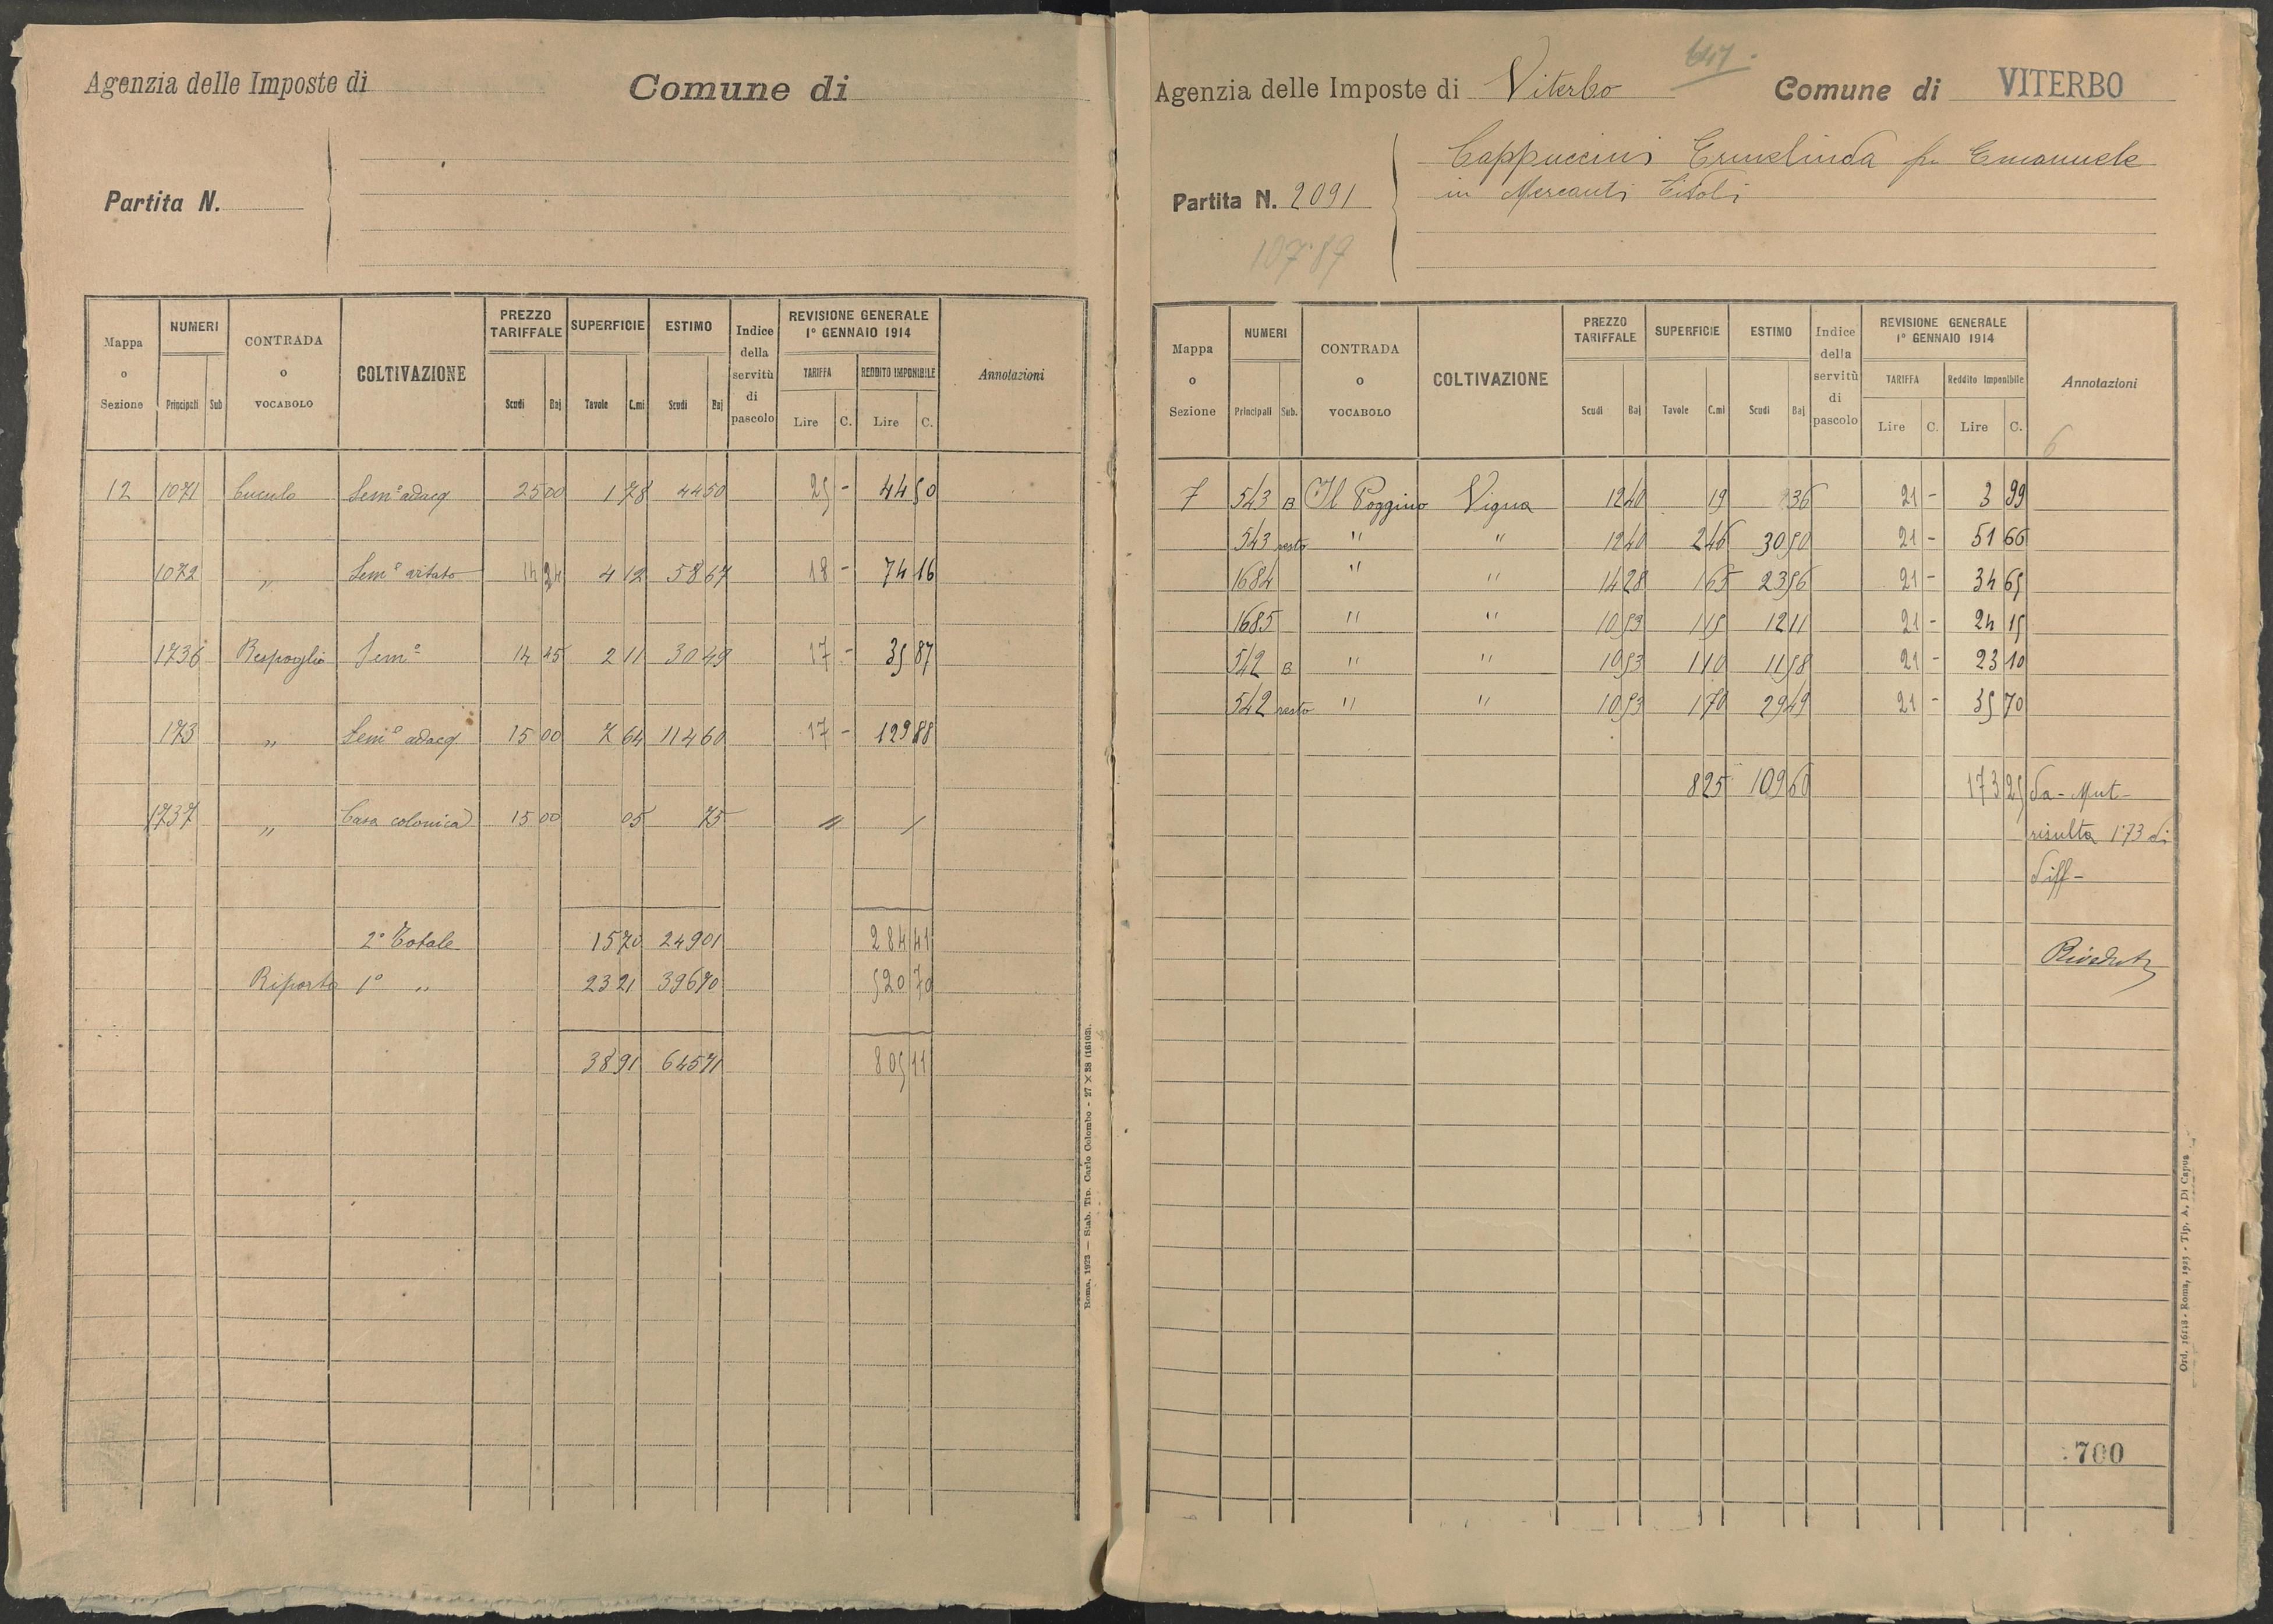 Agenzia delle Imposte di
Comune di
Partita N.
Mappa o Sezione
NUMERI
Principali
Sub
CONTRADA o VOCABOLO
COLTIVAZIONE
PREZZO TARIFFALE
Scudi
Baj
SUPERFICIE
Tavole
C.mi
ESTIMO
Scudi
Baj
Indice della servitù di pascolo
REVISIONE GENERALE 1° GENNAIO 1914
TARIFFA
REDDITO IMPONIBILE
Lire
C.
Lire
C.
Annotazioni
12 1071 Cuculo Sem° adacq 25 00 1 78 44 50 25 - 44 50
1072 " Sem° 14 24 4 12 58 67 18 - 74 16
1736 Respoglio Sem° 14 45 2 11 30 49 17 - 35 87
173 " Sem° adacq. 15 00 7 64 114 60 17 - 129 88
1737 " Casa colonica 15 00 05 75 " /
2° Totale 15 70 249 01 284 41
Riporto 1° " 23 21 396 70 520 70
38 91 645 71 805 11
Roma, 1923 — Stab. Tip. Carlo Colombo - 27 × 38 (16103).
Agenzia delle Imposte di Viterbo
Comune di VITERBO
Partita N. 2091
Cappuccini Ermelinda fu Emanuele
in Mercanti Titoli
107.87
Mappa o Sezione
NUMERI
Principali
Sub.
CONTRADA o VOCABOLO
COLTIVAZIONE
PREZZO TARIFFALE
Scudi
Baj
SUPERFICIE
Tavole
C.mi
ESTIMO
Scudi
Baj
Indice della servitù di pascolo
REVISIONE GENERALE 1° GENNAIO 1914
TARIFFA
Reddito Imponibile
Lire
C.
Lire
C.
Annotazioni
6
7 543 B Il Poggino Vigna 12 40 19 2 36 21 - 3 99
543 resto " " 12 40 2 46 30 50 21 - 51 66
1684 " " 14 28 1 65 23 56 21 - 34 65
1685 " " 10 53 1 15 12 11 21 - 24 15
542 B " " 10 53 1 10 11 58 21 - 23 10
542 resto " " 10 53 1 70 29 49 21 - 35 70
8 25 109 60 173 25 da - Mut-
risulta 1.73 di
diff-
700
Ord. 16118 - Roma, 1925 - Tip. A. Di Capua